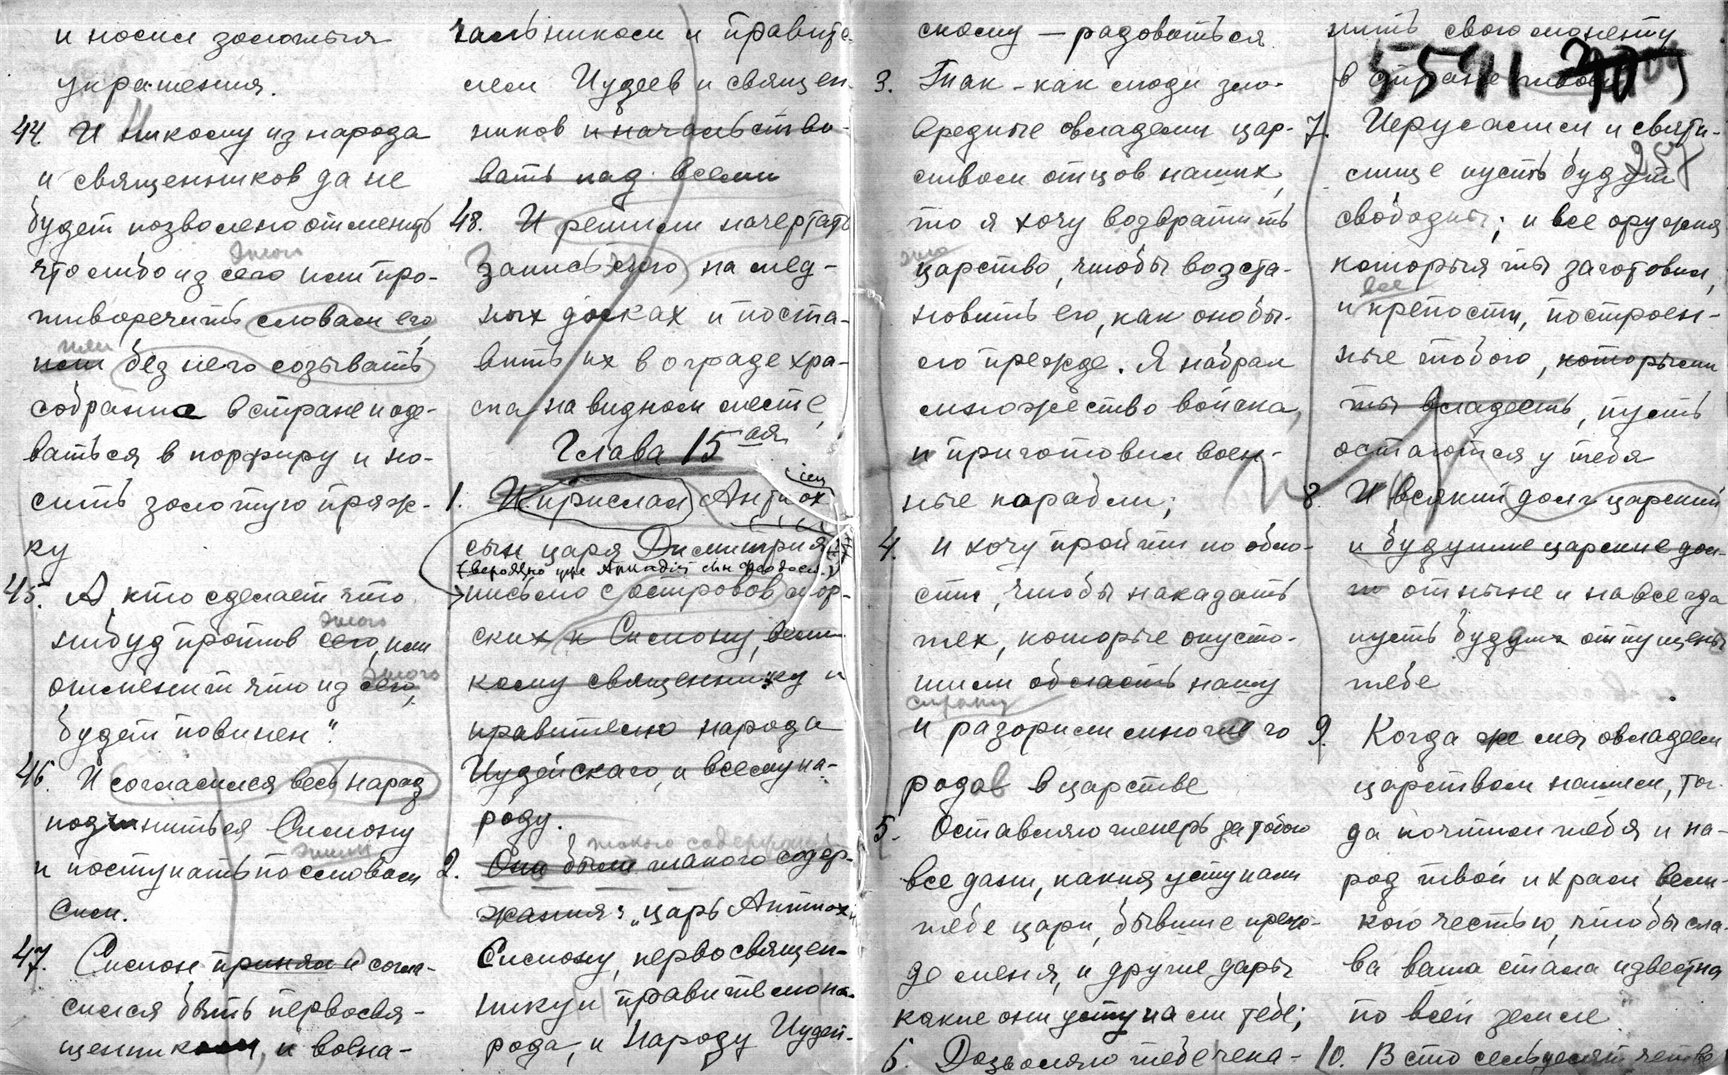 и носил золотыя
украшения.
44. И никому из народа
и священников да не
будет позволено отменить
этого
что либо из сего или про-
тиворечить словам его
или
или без него созывать
собрания в стране и оде-
ваться в порфиру и но-
сить золотую пряж-
ку
45. А кто сделает что
этого
нибуд против сего, или
этого
отменит что из сего,
будет повинен".
46. И согласился весь народ
подчиниться Симону
этим
и поступать по словам
сим.
47. Симон принял и согла-
сился быть первосвя-
щенником, и воена-
чальником и правите-
лем Иудеев и священ-
ников и начальство-
вать над всеми
48. И решили начертать
запись сию на мед-
ных досках и поста-
вить их в ограде хра-
ма на видном месте,
Глава 15 ая
1. И прислал Антиох
сын царя Димитрия
письмо с островов мор-
ских к Симону, вели-
кому священнику и
правителю народа
Иудейскаго, и всему на-
роду.
такого содержания
2. Оно было такого содер-
жания: „царь Антиох
Симону, первосвящен-
нику и правителю на-
рода, и народу Иудей-
скому — радоваться.
3. Так - как люди зло-
вредные овладели цар-
ством отцов наших,
то я хочу возвратить
это
царство, чтобы возста-
новить его, как оно бы-
ло прежде. Я набрал
множество войска,
и приготовил воен-
ные корабли;
4. и хочу пройти по обла-
сти, чтобы наказать
тех, которые опусто-
шили область нашу
страну
и разорили многие го
родов в царстве
5. Оставляю теперь за тобою
все дани, какия уступали
тебе цари, бывшие преж-
де меня, и другие дары
какие они уступали тебе;
6. Дозволяю тебе чека-
нить свою монету
5591
в стране твоей
7. Иерусалим и святи-
лище пусть будут
свободны; и все оружия
которыя ты заготовил,
все
и крепости, построен-
ные тобою, которыми
ты владеешь, пусть
остаются у тебя
8. И всякий долг царский
и будущие царские дол-
ги отныне и навсегда
пусть будут отпущены
тебе
9. Когда же мы овладеем
царством нашим, тог-
да почтим тебя и на-
род твой и храм вели-
кою честью, чтобы сла-
ва ваша стала известна
по всей земле".
10. В сто семьдесят четве